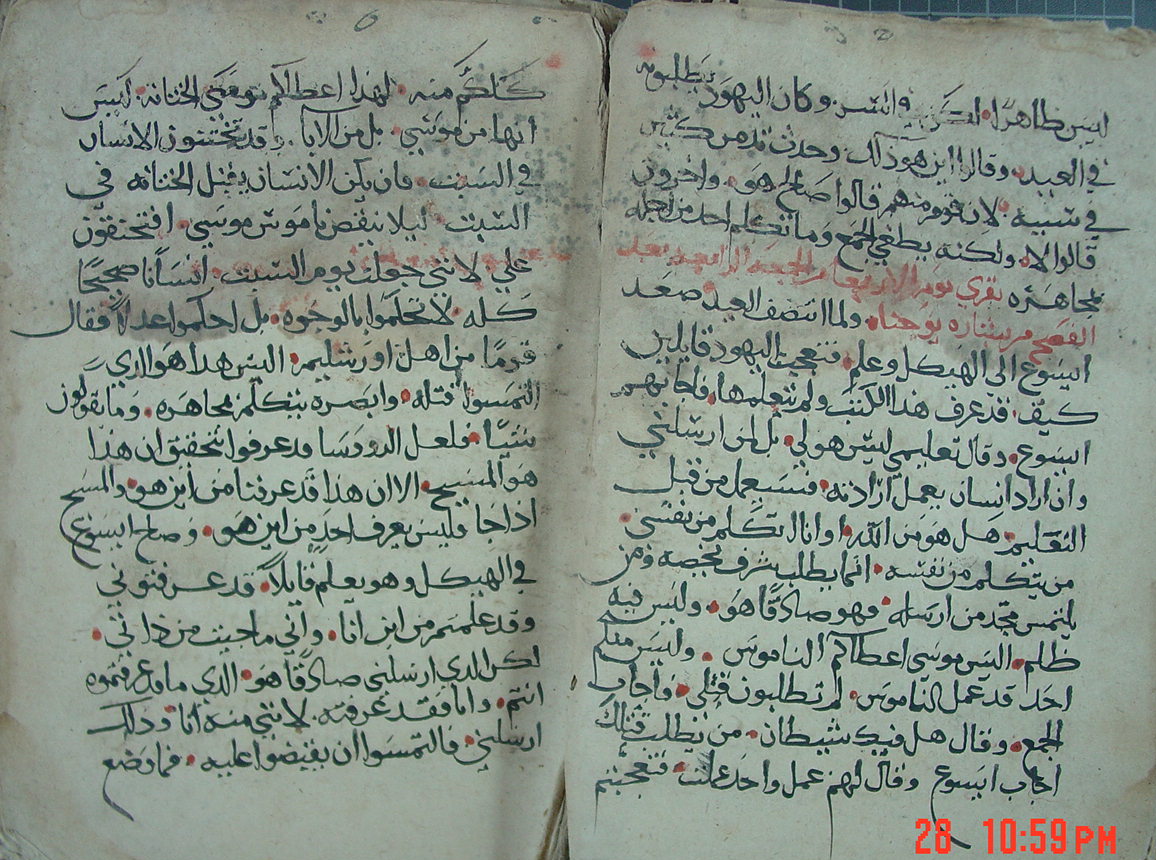 ليس ظاهرا. لكن في السر. وكان اليهود يطلبونه
في العيد. وقالوا اين هو ذلك وحدث تدمر كثير
في سببه. لان قوم منهم قالوا صالح هو. واخرون
قالوا لا. ولكنه يطغي الجمع وما تكلم احد من اجله
مجاهره يقري يوم الاربعا من الجمعه الرابعه بعد
الفصح من بشاره يوحنا. ولما انتصف العيد صعد
ايسوع الي الهيكل وعلم. فتعجبت اليهود قايلين
كيف قد عرف هذا الكتب ولم يتعلمها. فاجابهم
ايسوع. وقال تعليمي ليس هو لي. بل لمن ارسلني
وان اراد انسان يعمل ارادته. فسيعمل من قبل
التعليم. هل هو من الله. او انا اتكلم من نفسي.
من يتكلم من نفسه. انما يطلب شرف يخصه ومن
يلتمس مجد من ارسله. فهو صادقا هو. وليس فيه
ظلم. اليس موسي اعطاكم الناموس. وليس منكم
احدا قد عمل الناموس. لم تطلبون قتلي. فاجاب
الجمع. وقال هل فيك شيطان. من يطلب قتلك
اجاب ايسوع وقال لهم عمل واحد عملت. فتعجبتم
كلكم منه. لهذا اعطاكم موسي الختانه. ليس
انها من موسي. بل من الابا. وقد تختنون الانسان
في السبت. فان يكن الانسان يقبل الختانه في
السبت. ليلا ينقض ناموس موسي. افتحنقون
علي لانني جعلت يوم السبت. انسانا صحيحا
كله. لا تحكموا بالوجوه. بل احكموا عدلا فقال
قوما من اهل اورشليم. اليس هذا هو الذي
التمسوا قتله. وابصره يتكلم مجاهره. وما يقولون
شييا. فلعل الروسا قد عرفوا بتحقيق ان هذا
هو المسيح. الا ان هذا قد عرفنا من اين هو. والمسيح
اذا جا فليس يعرف احد من اين هو. وصاح ايسوع
في الهيكل وهو يعلم قايلا. قد عرفتوني
وقد علمتم من اين انا. واني ما جيت من ذاتي.
لكن الذي ارسلني صادقا هو. الذي ما قد عرفتموه
انتم. وانا فقد عرفته. لانني منه انا. وذلك
ارسلني. فالتمسوا ان يقبضوا عليه. فما وضع
28 10:59 PM